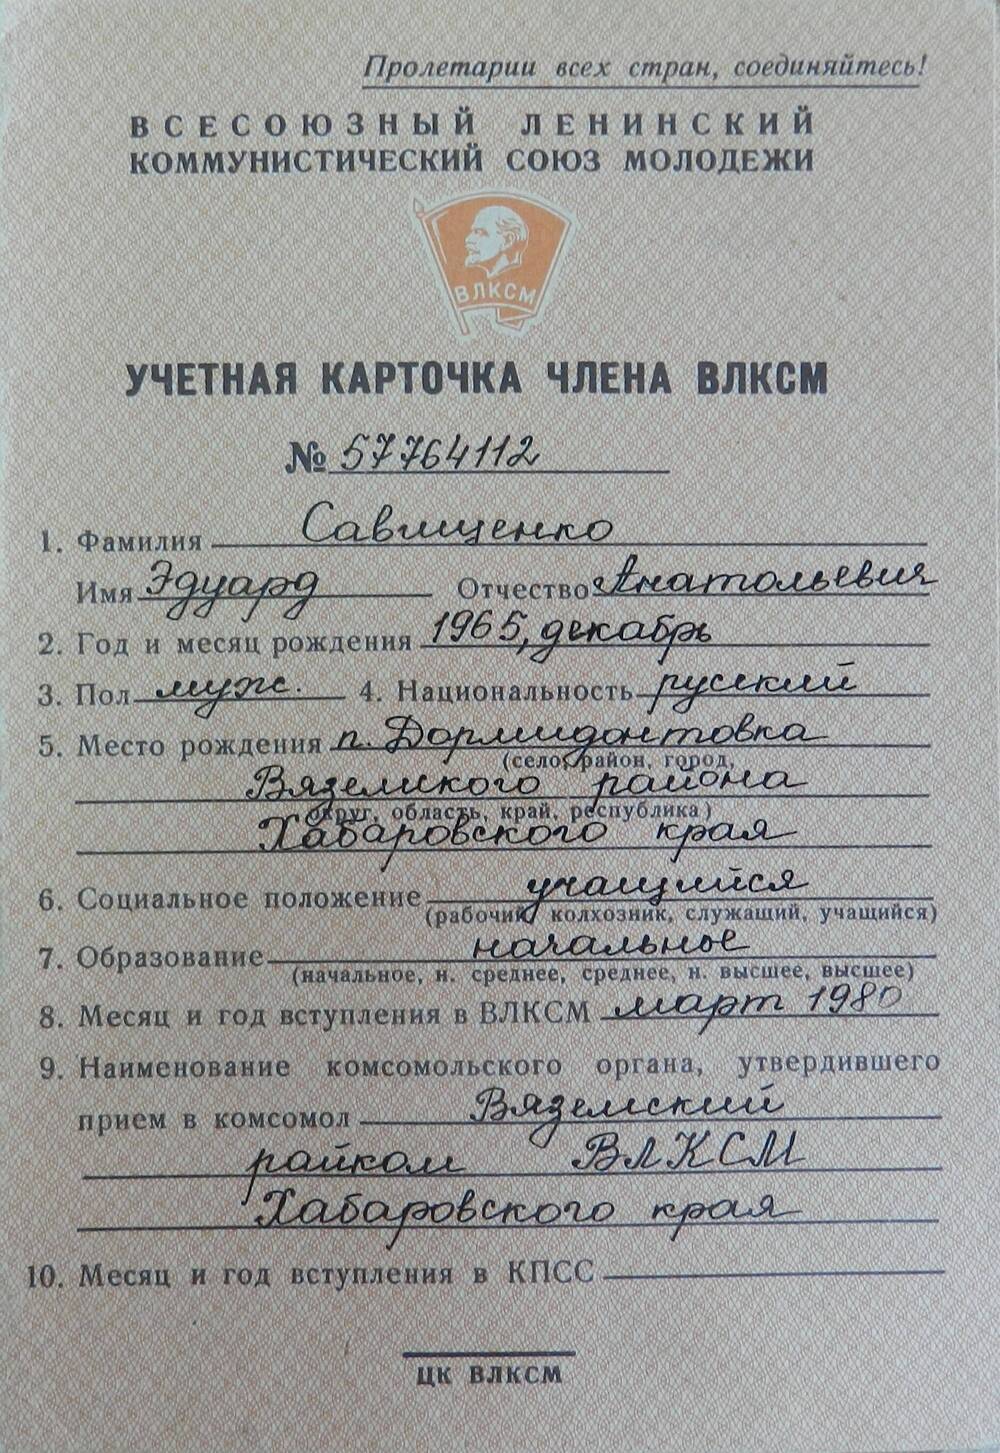 Пролетарии всех стран, соединяйтесь!
ВСЕСОЮЗНЫЙ ЛЕНИНСКИЙ
КОММУНИСТИЧЕСКИЙ СОЮЗ МОЛОДЕЖИ
ВЛКСМ
УЧЕТНАЯ КАРТОЧКА ЧЛЕНА ВЛКСМ
№ 57764112
1. Фамилия Савищенко
Имя Эдуард Отчество Анатольевич
2. Год и месяц рождения 1965, декабрь
3. Пол муж. 4. Национальность русский
5. Место рождения п. Дормидонтовка
(село, район, город,
Вяземского района
округ, область, край, республика)
Хабаровского края
6. Социальное положение учащийся
(рабочий, колхозник, служащий, учащийся)
7. Образование начальное
(начальное, н. среднее, среднее, н. высшее, высшее)
8. Месяц и год вступления в ВЛКСМ март 1980
9. Наименование комсомольского органа, утвердившего
прием в комсомол Вяземский
райком ВЛКСМ
Хабаровского края
10. Месяц и год вступления в КПСС
ЦК ВЛКСМ